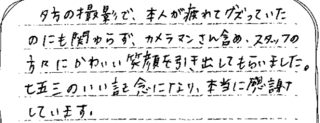 夕方の撮影で、本人が疲れてグズっていた
のにも関わらず、カメラマンさん含め、スタッフの
方々にかわいい笑顔を引き出してもらいました。
七五三のいい記念になり、本当に感謝
しています。